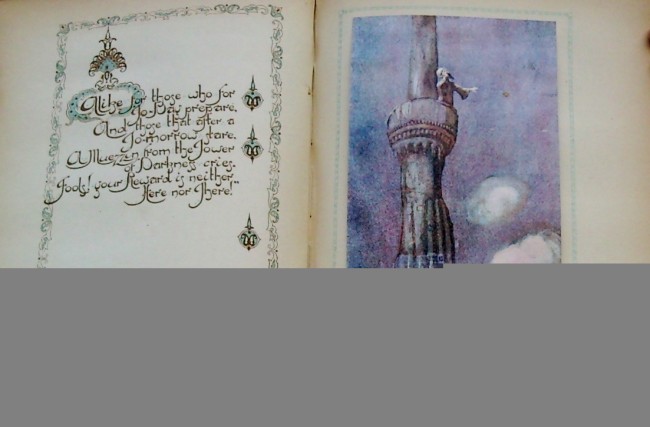 Alike for those who for
To-Day prepare,
And those that after a
To-morrow stare,
A Muezzin from the Tower
of Darkness cries,
"Fools! your Reward is neither
Here nor There!"